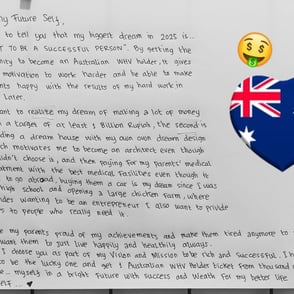 My Future Self,
to tell you that my biggest dream in 2025 is...
T TO BE A SUCCESSFUL PERSON". By getting the
nity to become an Australian WHV holder, it gives
motivation to work harder and be able to make
ents happy with the results of my hard work in
Later.
ant to realize my dream of making a lot of money
a target of at least 1 Billion Rupiah, the second is
lding a dream house with my own dream design
ch motivates me to become an architect even though
uldn't choose it, and then paying for my parents' medical
atment with the best medical facilities even though it
to go abroad, buying them a car is my dream since I was
high school and opening a large chicken farm, where
ides wanting to be an entrepreneur I also want to provide
s to people who really need it.
e my parents proud of my achievements and make them tired anymore to
want them to just live happily and healthily always.
I choose you as part of my Vision and Mission to be rich and successful. I h
to be the lucky one and get 1 Australian WHV Holder ticket from thousand
e... myself in a bright Future with Success and Wealth For my better life
self...